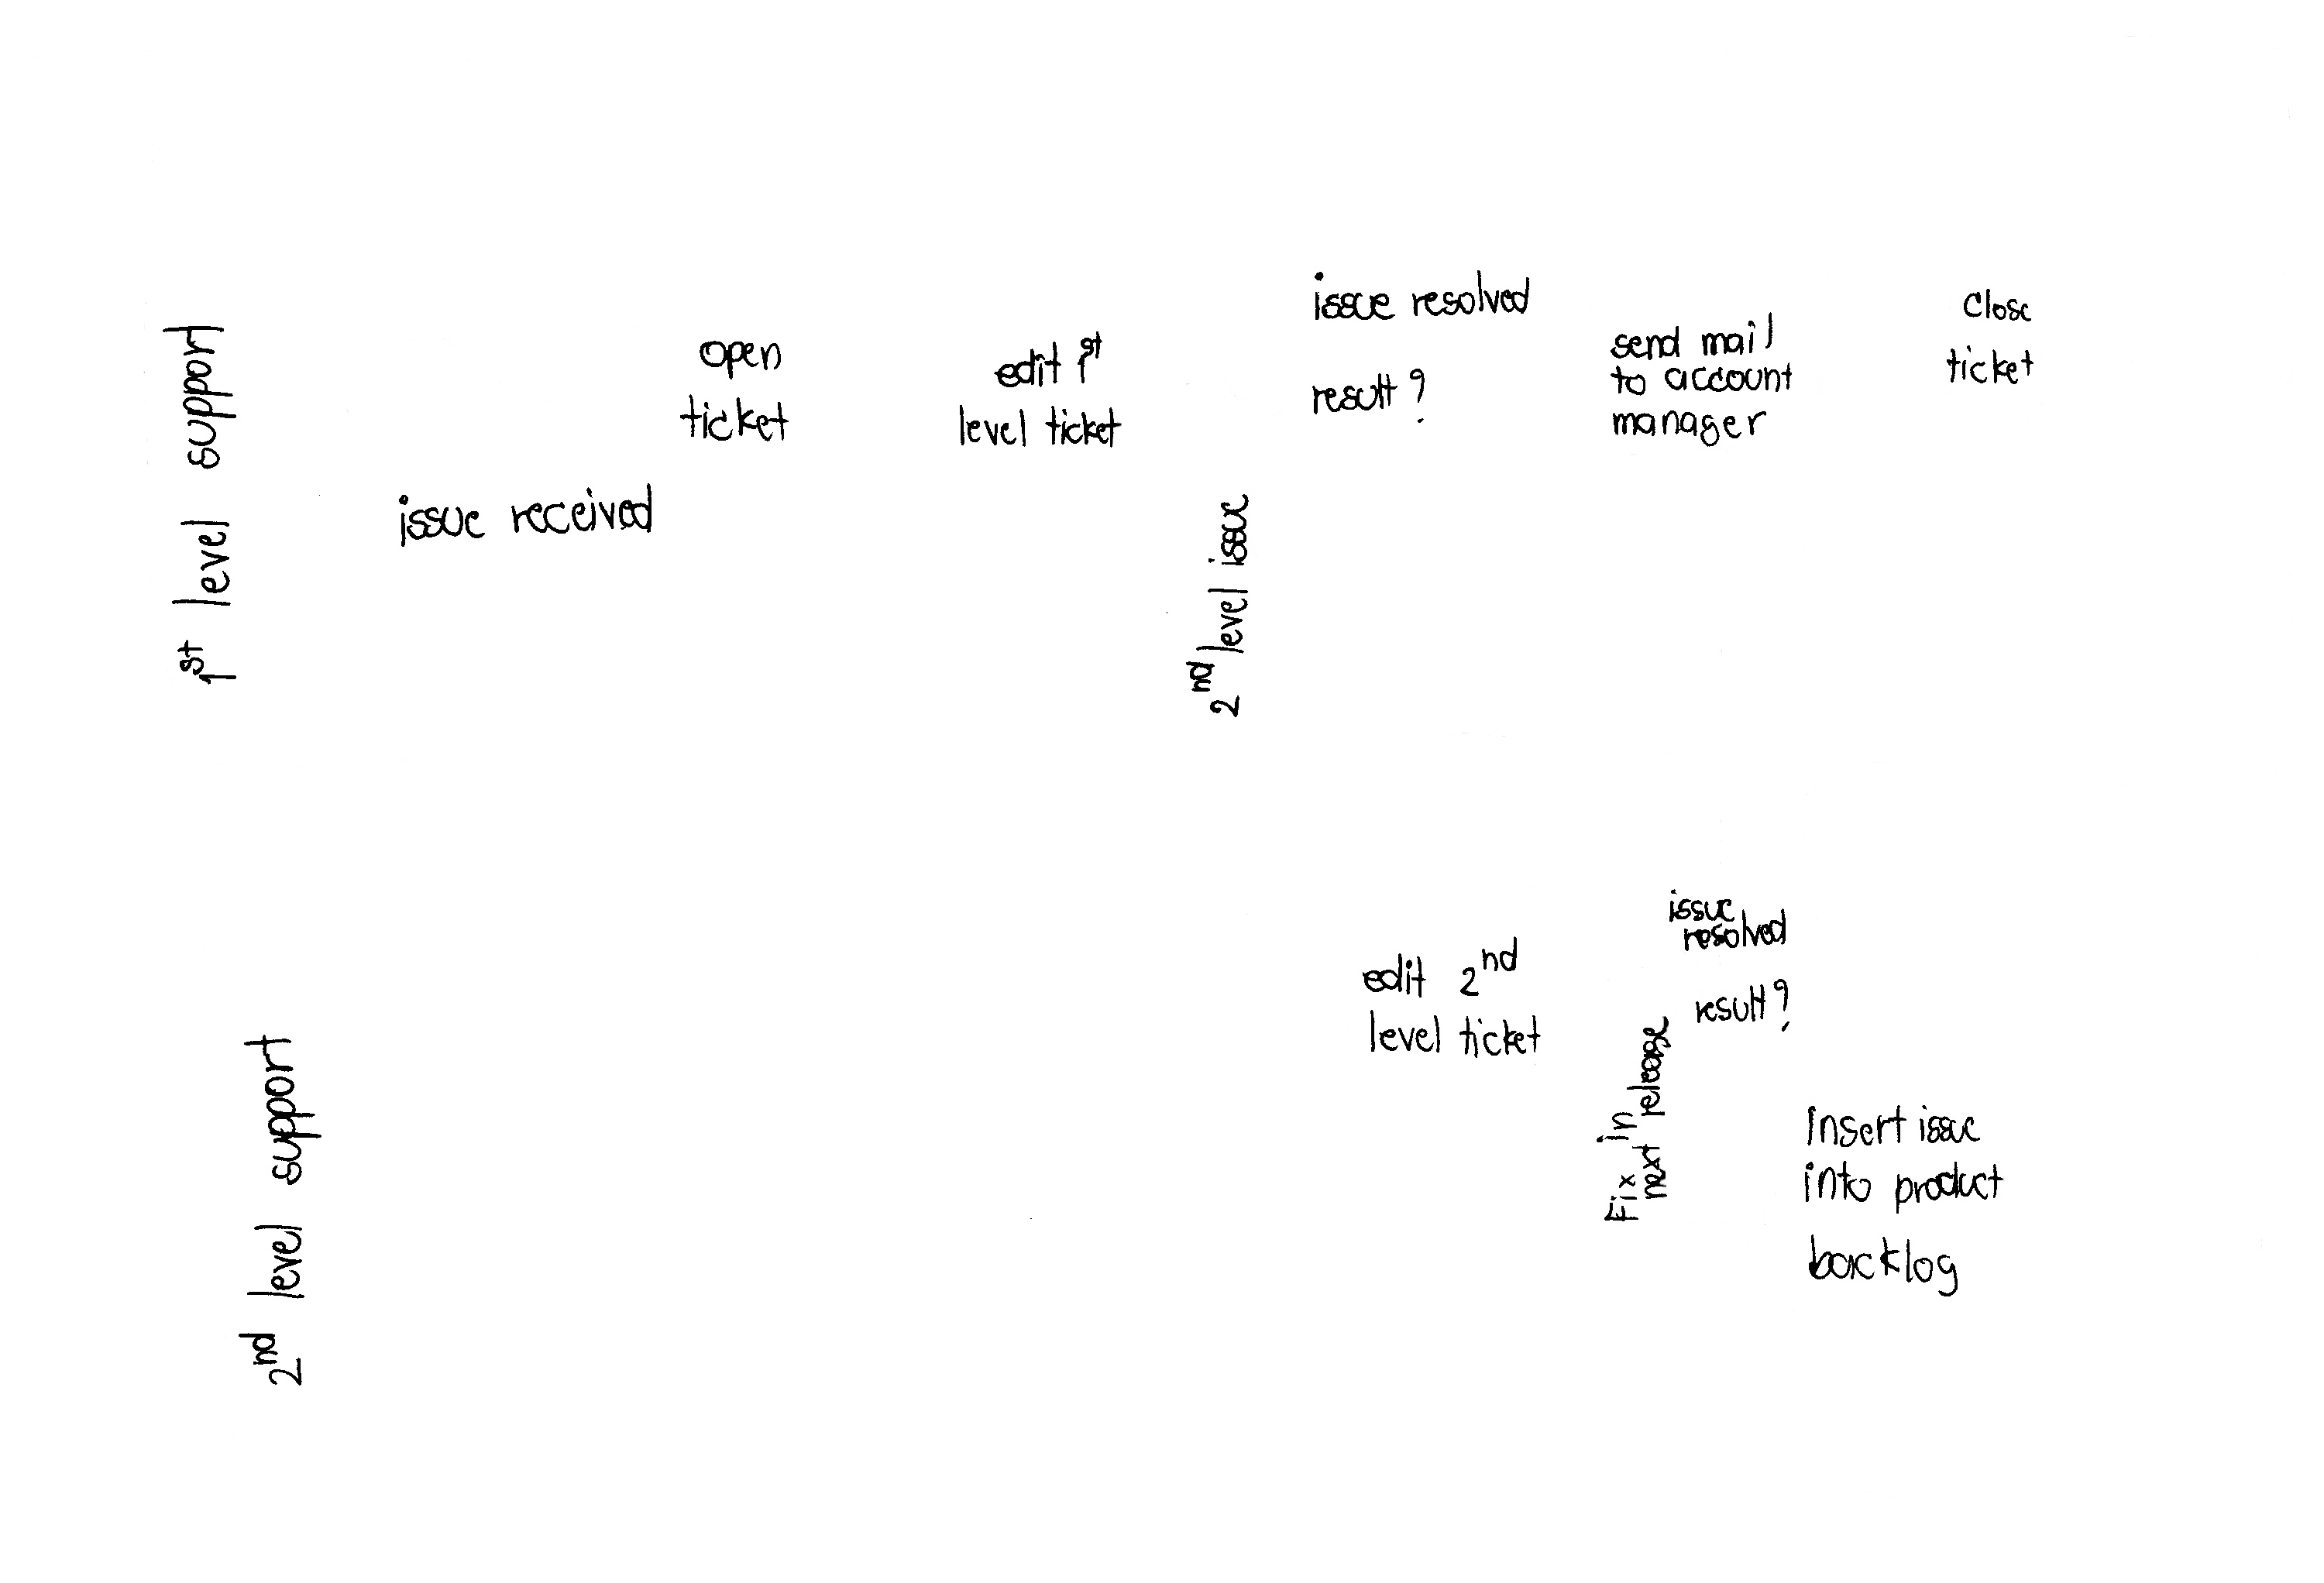 1st level support
issue received
open
ticket
edit 1st
level ticket
issue resolved
result?
2nd level issue
send mail
to account
manager
close
ticket
2nd level support
edit 2nd
level ticket
issue
resolved
result?
Fix in
next release
Insert issue
into product
backlog